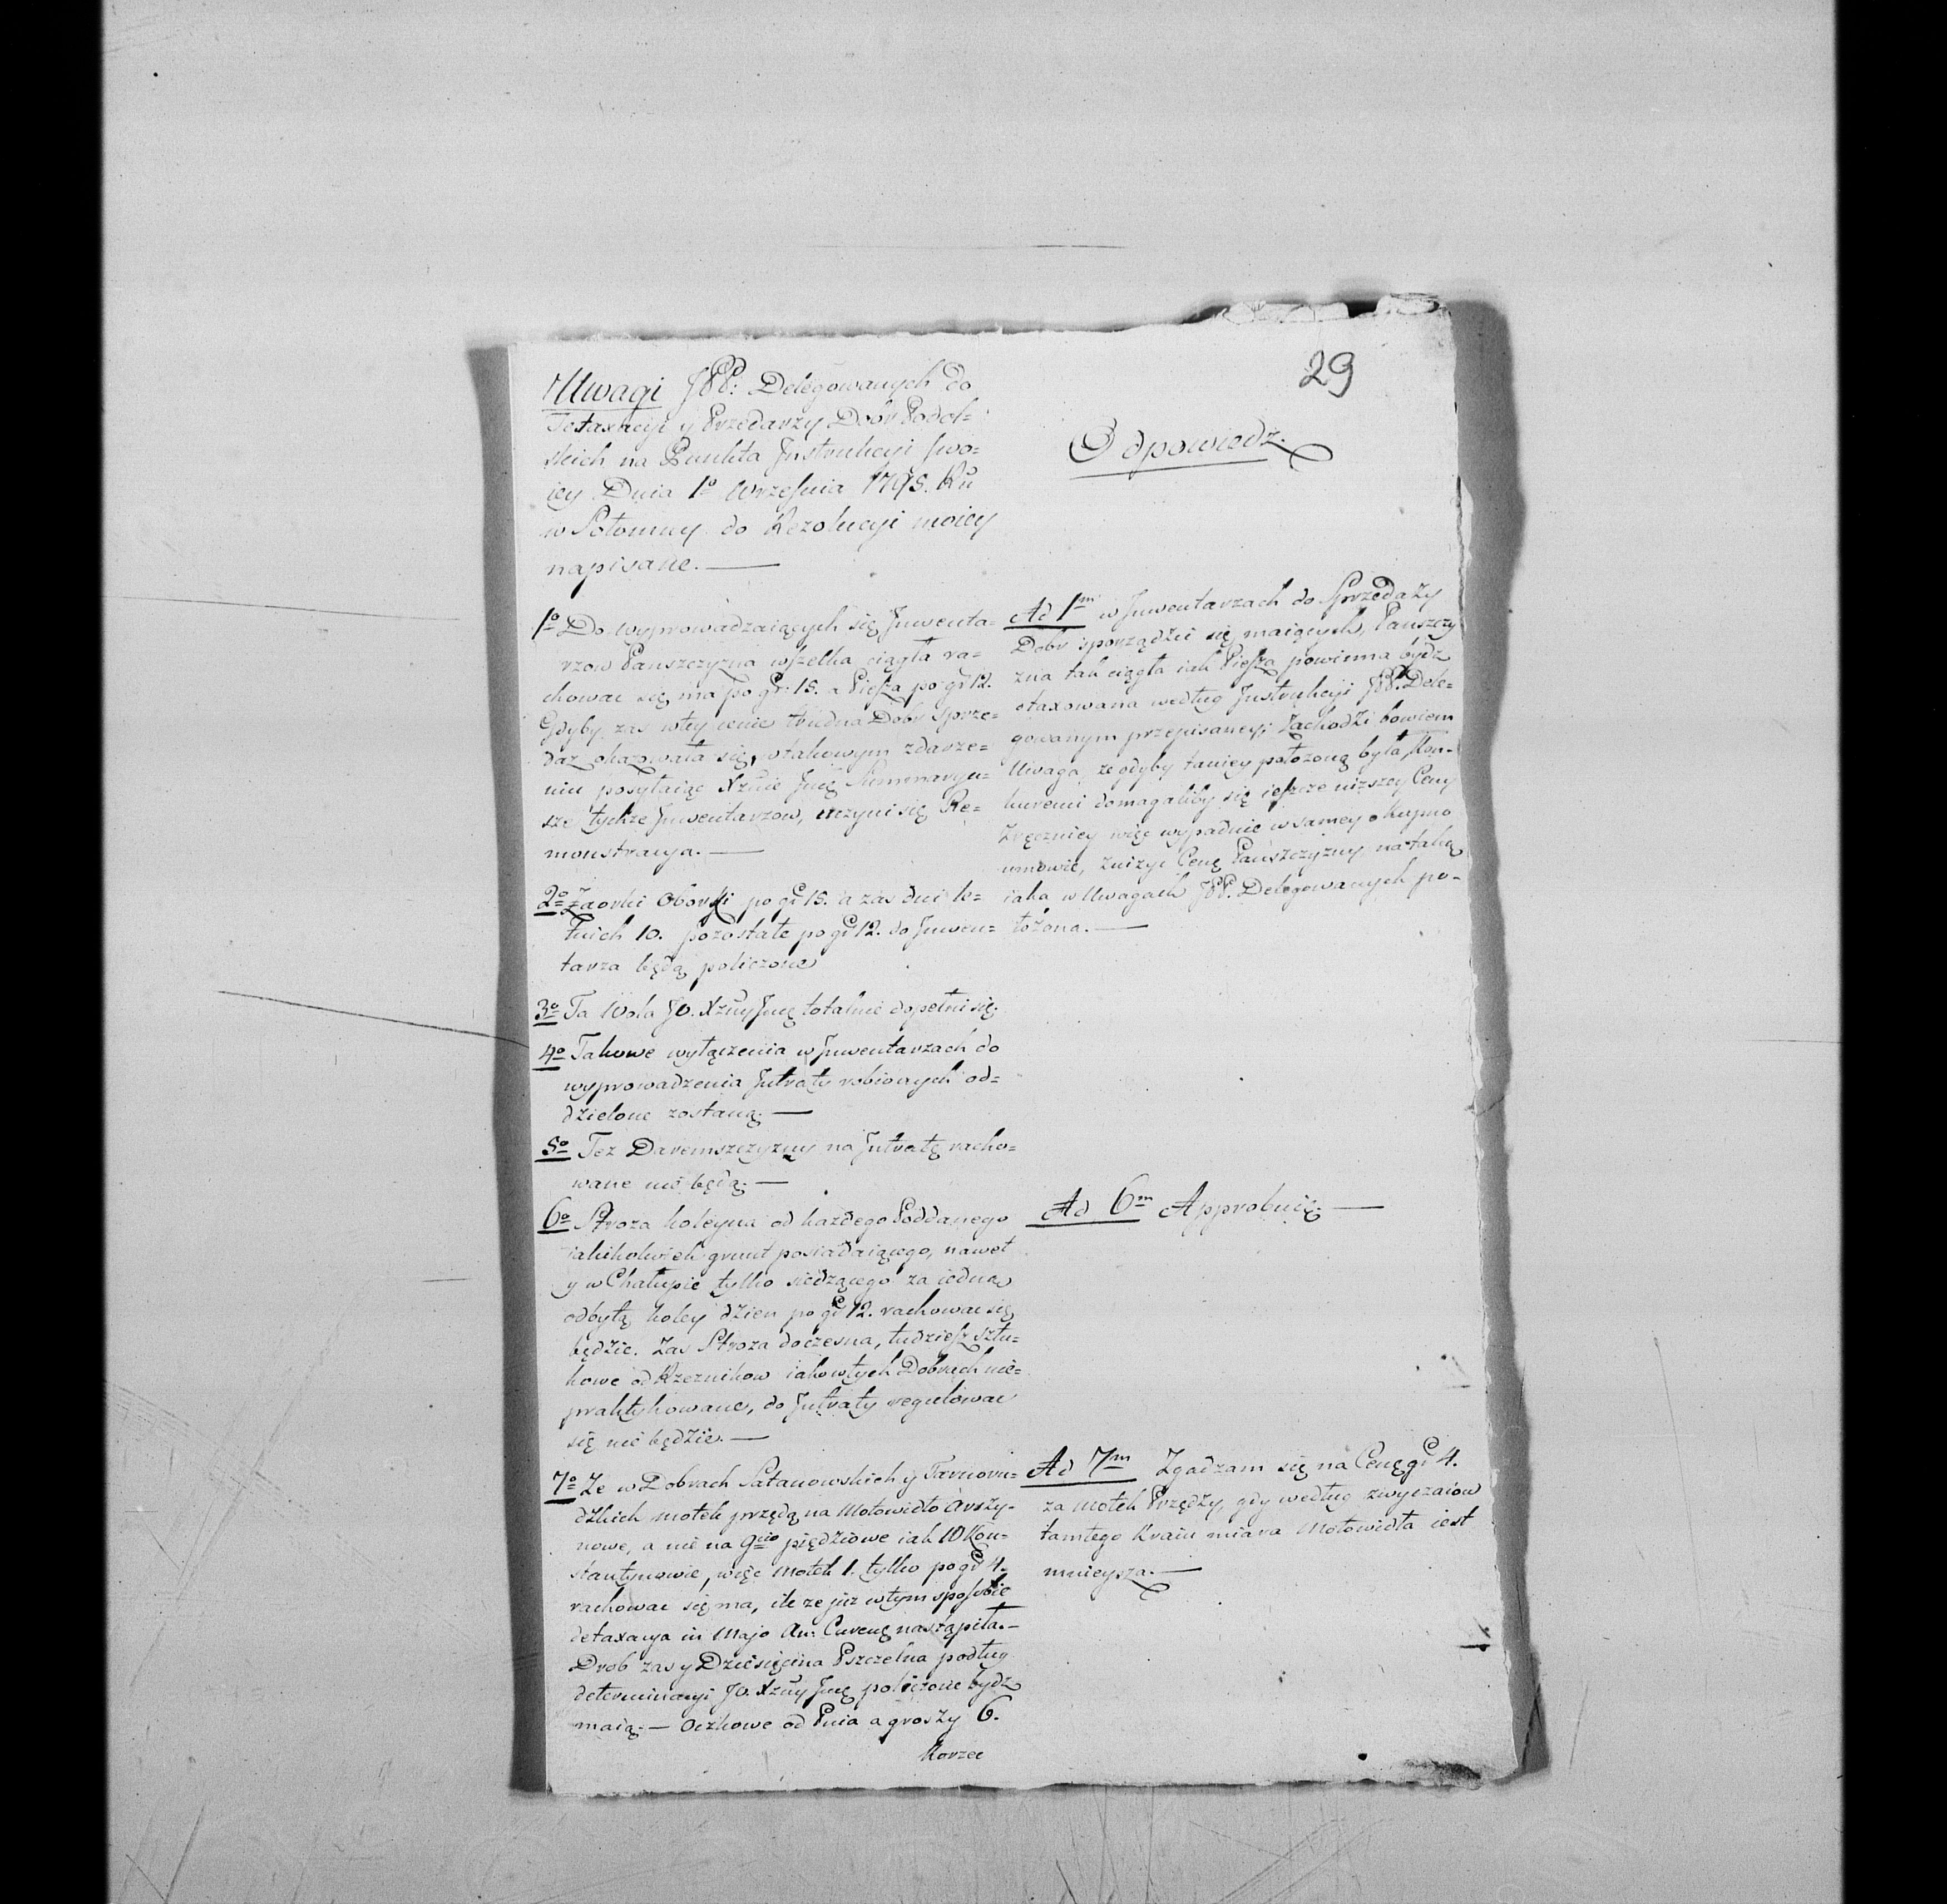 29
Uwagi JPP: Delegowanych do
Detaxacyi y Przedarzy Dobr Podol=
skich na Punkta Instrukcyi swo=
iey Dnia 1o Wrzesnia 1795. Ru
w Potomny do Rezolucyi moiey
napisane. —
1o Do wyprowadzaiących się Inwenta=
rzow Panszczyzna wszelka ciągła ra=
chowac się ma po gr: 15. a Piesza po gr 12.
Gdyby zas wtey cenie trudna Dobr sprze=
daz okazowała się, wtakowym zdarze=
niu posyłaiąc Xznie Jmę Summaryu=
sze tychze Inwentarzow, uczyni się Re=
monstracya. —
2o Zaorki Oborki po gr 15. a zas dni le=
tnich 10. pozostałe po gr 12. do Inwen=
tarza będą policzone
3o Ta Wola JO. Xzny Jmę totalnie dopełni się.
4o Takowe wyłączenia w Inwentarzach do
wyprowadzenia Intraty robionych od=
dzielone zostaną. —
5o Tez Daremszczyzny na Intratę racho=
wane nie będą. —
6o Stroza koleyna od kazdego Poddanego
iakikolwiek grunt posiadaiącego, nawet
y w Chałupie tylko siedzącego za iedną
odbytą koley dzien po gr 12. rachowac się
będzie. Zas Stroza doczesna, tudziesz sztu=
kowe od Rzeznikow iako wtych Dobrach nie=
praktykowane, do Intraty regulowac
się nie będzie. —
7o Ze w Dobrach Satanowskich y Tarnoru=
dzkich motek przędą na Motowidło Arszy=
nowe, a nie na 9cio piędziowe iak W Kon=
stantynowie, więc Motek 1. tylko po gr 4.
rachowac się ma, ile ze juz wtym sposobie
detaxacya in Majo An: Curenę nastąpiła. —
Drob zas y Dziesięcina Pszczelna podług
determinacyi JO. Xzny Jmę policzone bydz
maią. — Oczkowe od Pnia a groszy 6.
Korzec
Odpowiedz.
Ad 1m w Inwentarzach do Sprzedazy
Dobr sporządzić się maiących, Panszczy
zna tak ciągła iak Piesza powinna bydz
otaxowana według Instrukcyi JPP. Dele=
gowanym przepisaney; Zachodzi bowiem
Uwaga, ze gdyby taniey połozoną była, Kon=
kurenci domagaliby się ieszcze nizszey Ceny
Zręczniey więc wypadnie w samey o Kupno
umowie, znizyc Cenę Panszczyzny na taką
iaka w Uwagach JPP. Delegowanych po=
łożona. —
Ad 6m Approbuię. —
Ad 7m Zgadzam się na Cenę gr 4.
za motek Przędzy, gdy według zwyczaiow
tamtego Kraiu miara Motowidła iest
mnieysza. —